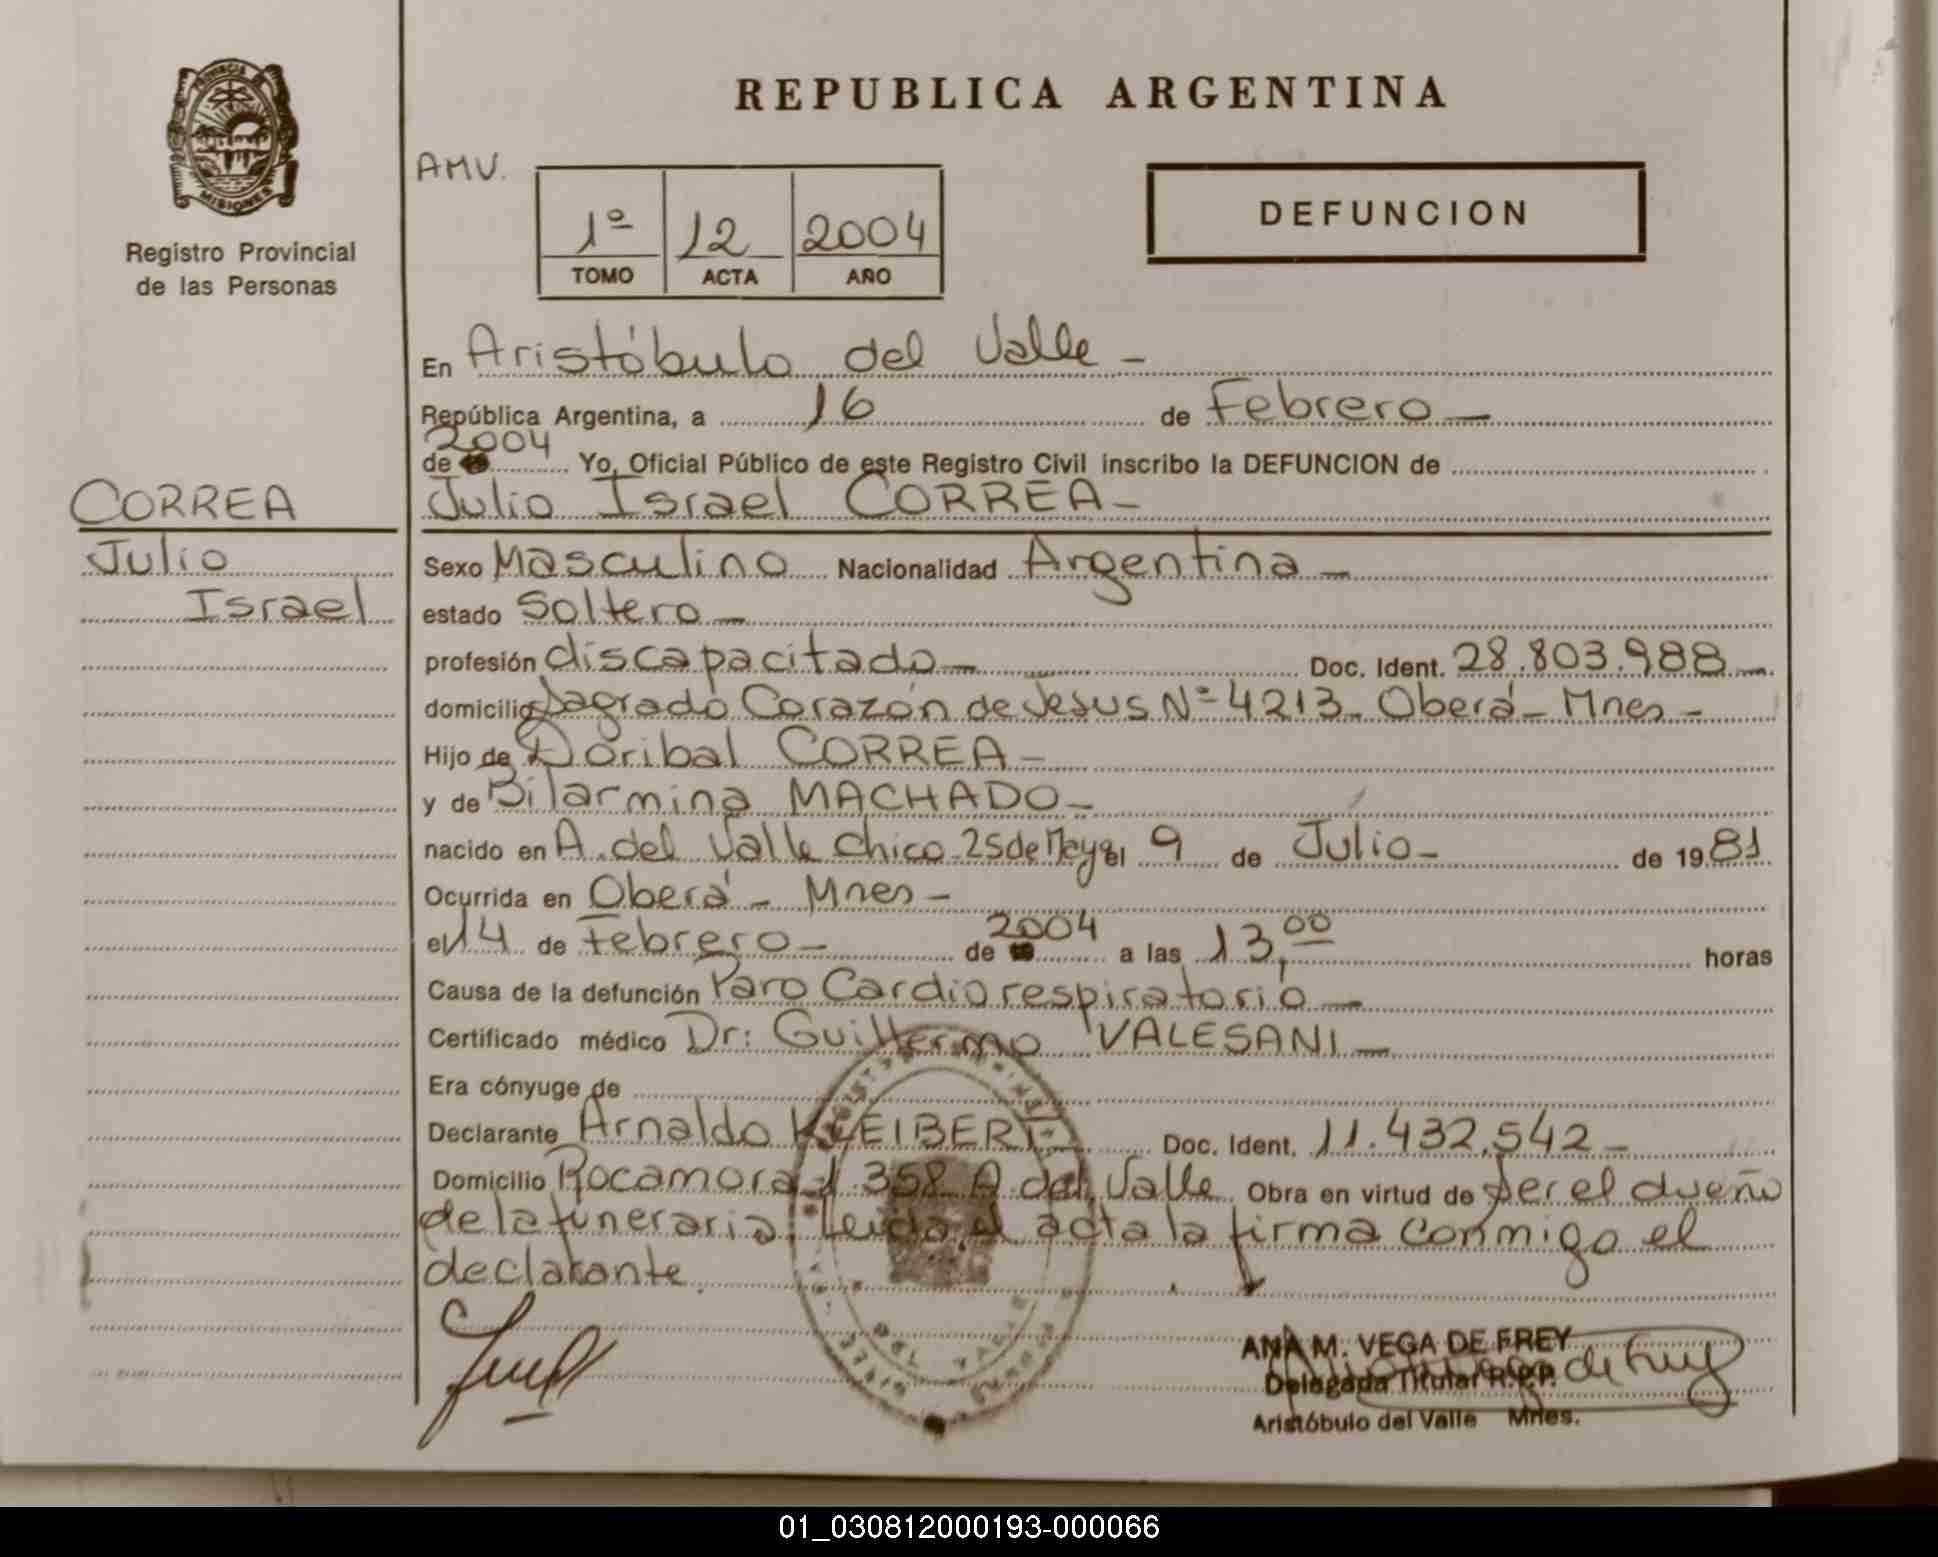 REPUBLICA ARGENTINA
PROVINCIA
MISIONES
Registro Provincial
de las Personas
AMV.
1º 12 2004
TOMO ACTA AÑO
DEFUNCION
En Aristóbulo del Valle -
República Argentina, a 16 de Febrero -
de 2004 Yo, Oficial Público de este Registro Civil inscribo la DEFUNCION de
Julio Israel CORREA -
CORREA
Julio
Israel
Sexo Masculino Nacionalidad Argentina -
estado Soltero -
profesión discapacitado - Doc. Ident. 28.803.988 -
domicilio Sagrado Corazón de Jesus Nº 4213 - Oberá - Mnes -
Hijo de Doribal CORREA -
y de Bilarmina MACHADO -
nacido en A. del Valle chico - 25 de Mayo el 9 de Julio - de 1981
Ocurrida en Oberá - Mnes -
el 14 de Febrero - de 2004 a las 13,00 horas
Causa de la defunción Paro Cardiorespiratorio -
Certificado médico Dr: Guillermo VALESANI -
Era cónyuge de
Declarante Arnaldo KLEIBERT - Doc. Ident. 11.432.542 -
Domicilio Rocamora 358 A. del Valle Obra en virtud de ser el dueño
de la funeraria. Leida el acta la firma conmigo el
declarante.
DEL VALLE
ANA M. VEGA DE FREY
Delegada Titular R.P.P.
Aristóbulo del Valle Mnes.
01_030812000193-000066